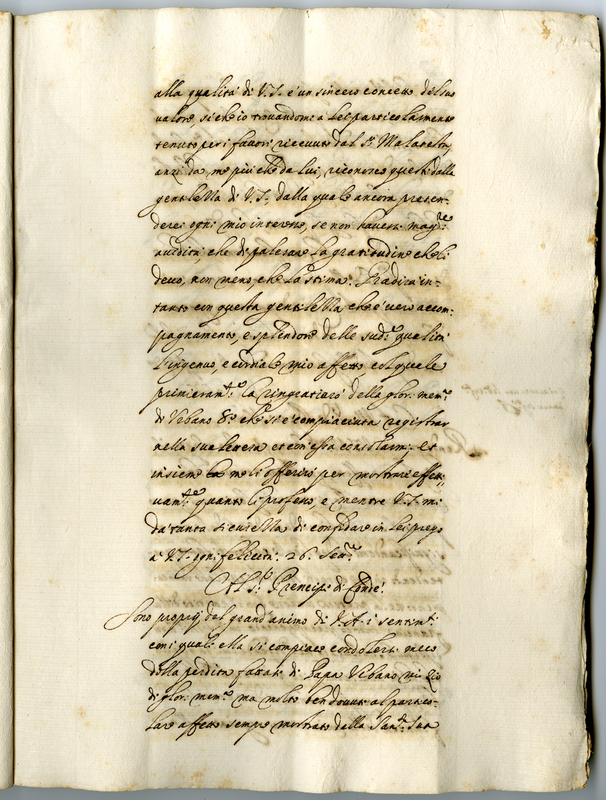 alla qualità di V.S. è un sincero concetto del suo
valore, si che io trovandomi a Lei particolarmente
tenuto per i favori ricevuti dal Sr.
anzi da me più che da lui, riconosco questi dalla
gentilezza di V.S. dalla quale ancora
ogni mio interesse, se non havessi magre.
che di palesare la gratitudine che li
devo, non meno che la stima. Gradirà in-
tanto con questa gentilezza che è vero accom-
pagnamento, e splendore delle sude. qualità
l'ingenuo, e cordiale mio affetto col quale
primieramte. la ringratiarò della glor. mem.
di Urbano 8o. che si è compiaciuta registrar
nella sua lettera et con essa consolarmi. Et
insieme me li offerirò per mostrarli effetti-
vamte. quanto li professo, e mentre V.S. mi
dà tanta sicurezza di confidare in Lei prego
a V.S. ogni felicità. 26.
Al Sr. Prencipe di Condé.
Sono proprij del grand'animo di V.A. i sentimti.
con i quali ella si compiace condolersi meco
della perdita fattasi di Papa Urbano mio Zio
di glor. mem. ma molto ben dovuti al partico-
lare affetto sempre mostrato dalla Santà. Sua